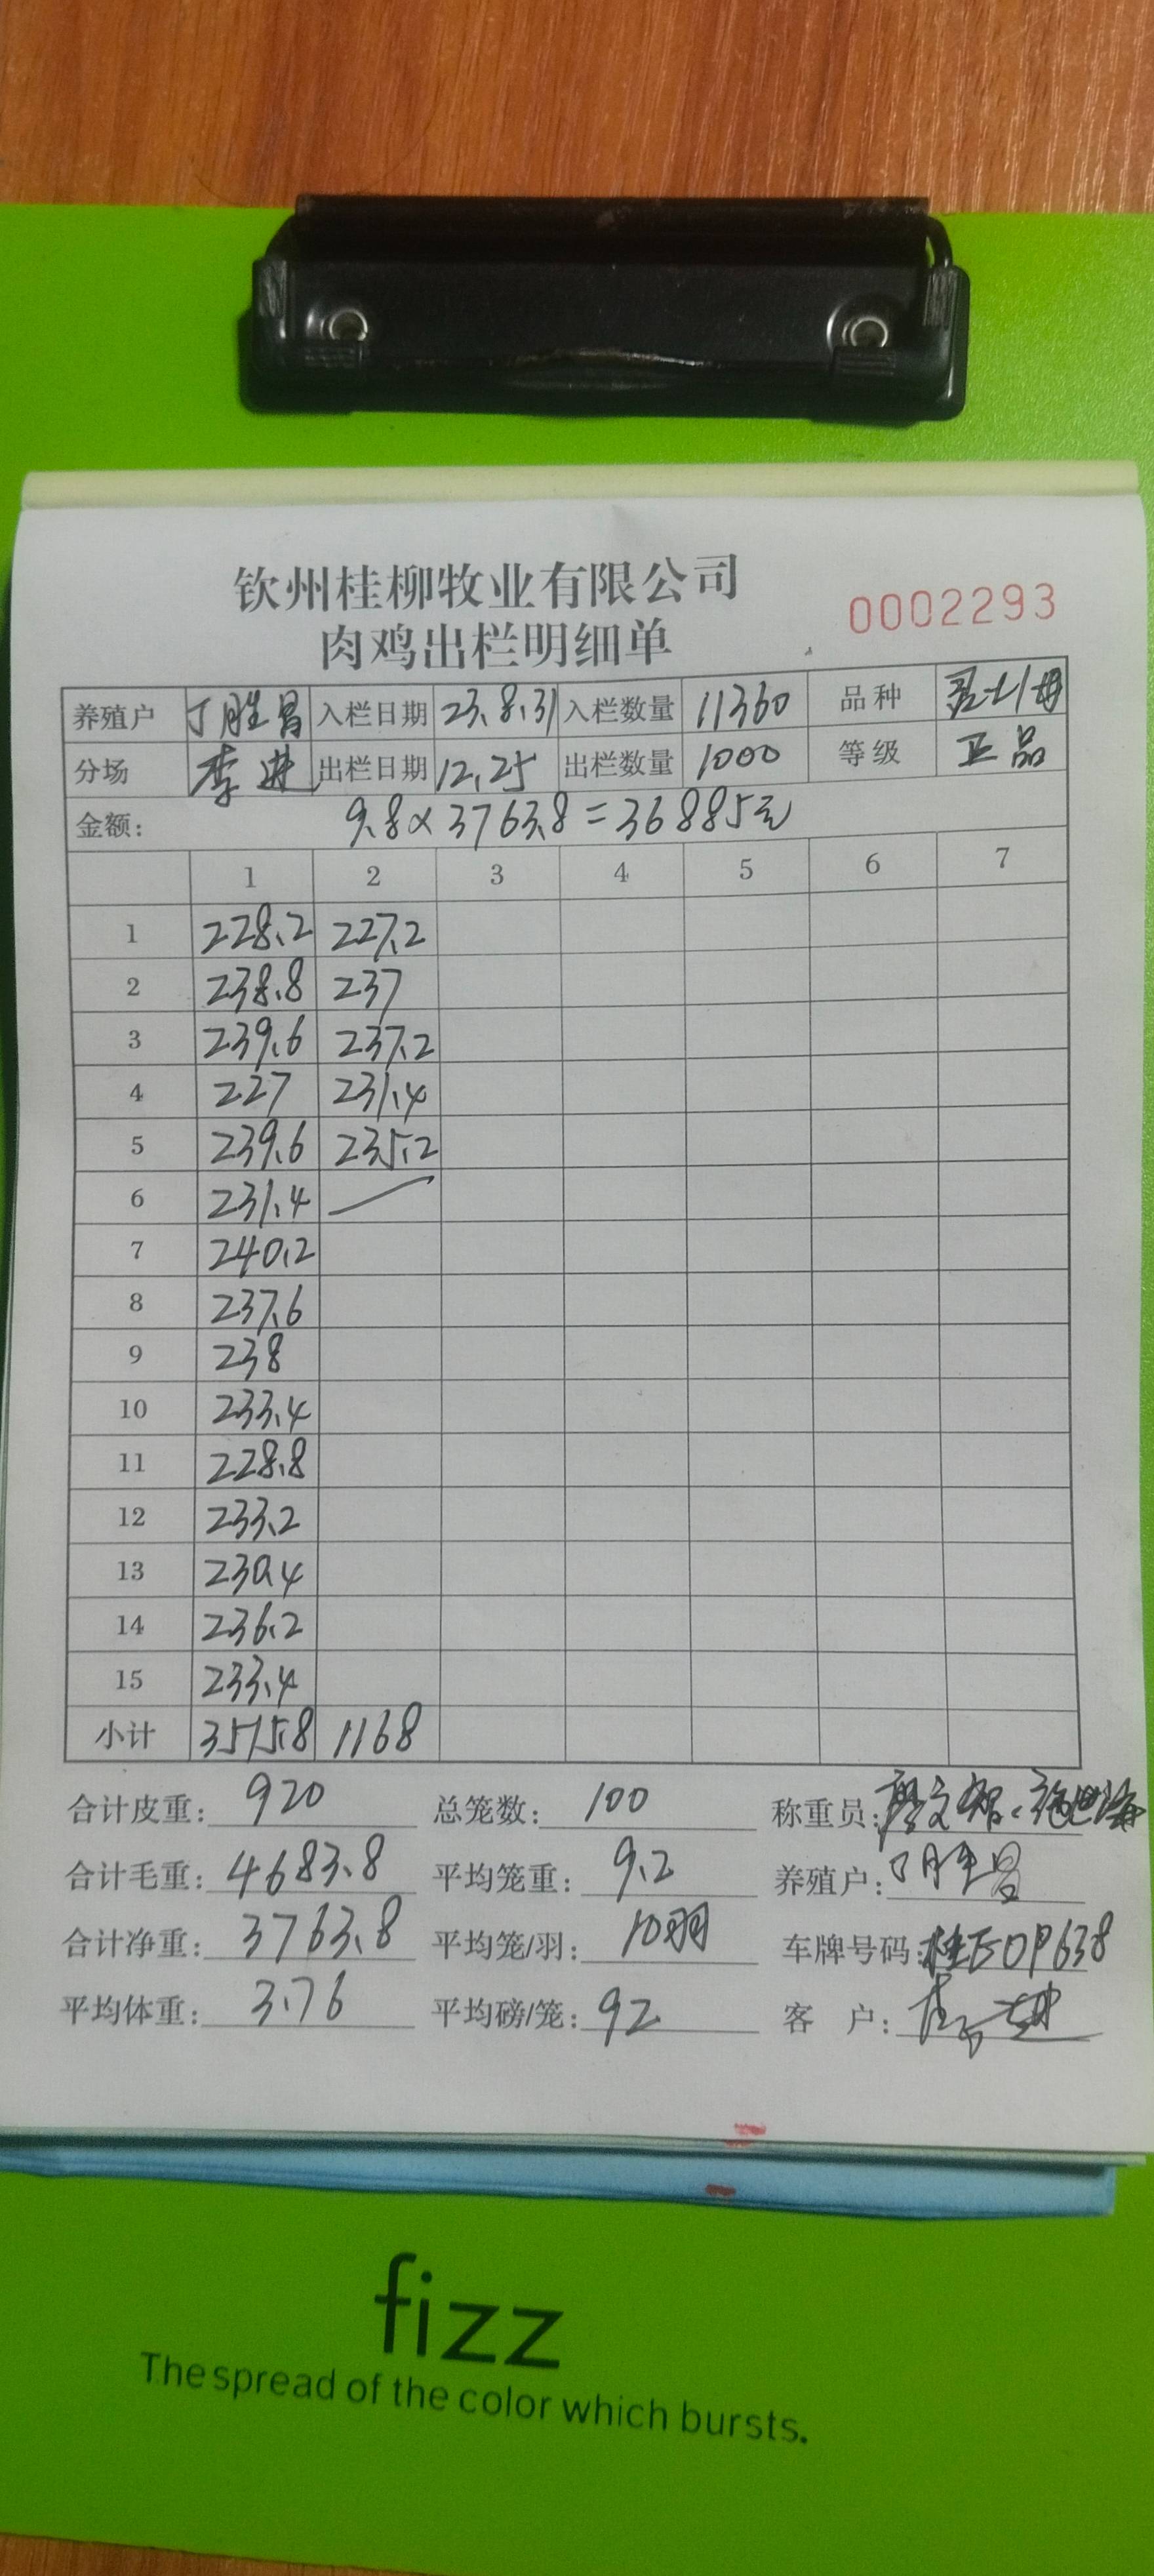 钦州桂柳牧业有限公司
肉鸡出栏明细单
0002293
养殖户 丁胜昌 入栏日期 23.8.31 入栏数量 11360 品种
分场 李进 出栏日期 12.25 出栏数量 1000 等级 正品
金额: 9.8×3763.8=36885元
1 2 3 4 5 6 7
1 228.2 227.2
2 238.8 237
3 239.6 237.2
4 227 231.4
5 239.6 235.2
6 231.4
7 240.2
8 237.6
9 238
10 233.4
11 228.8
12 233.2
13 230.4
14 236.2
15 233.4
小计 3515.8 1168
合计皮重: 920 总笼数: 100 称重员:
合计毛重: 4683.8 平均笼重: 9.2 养殖户: 丁胜昌
合计净重: 3763.8 平均笼/羽: 10羽 车牌号码: 桂E0P638
平均体重: 3.76 平均磅/笼: 92 客 户:
fizz
The spread of the color which bursts.